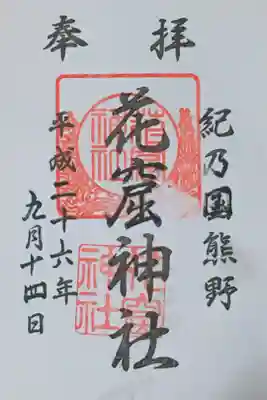 奉拝
紀乃国熊野
花窟神社
平成二十六年
九月十四日